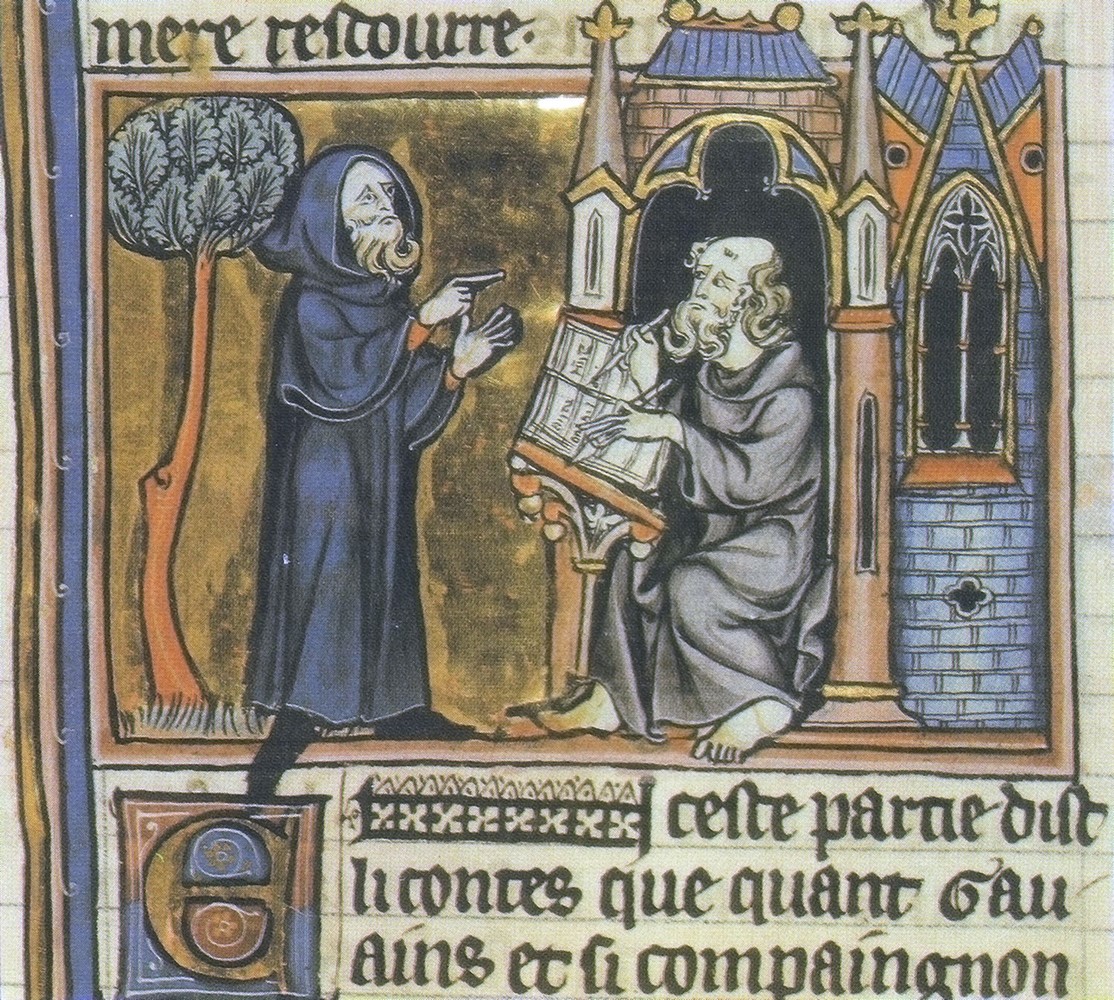 mere rescourre.
E ceste partie dist
li contes que quant Gau
ains et si compaingnon